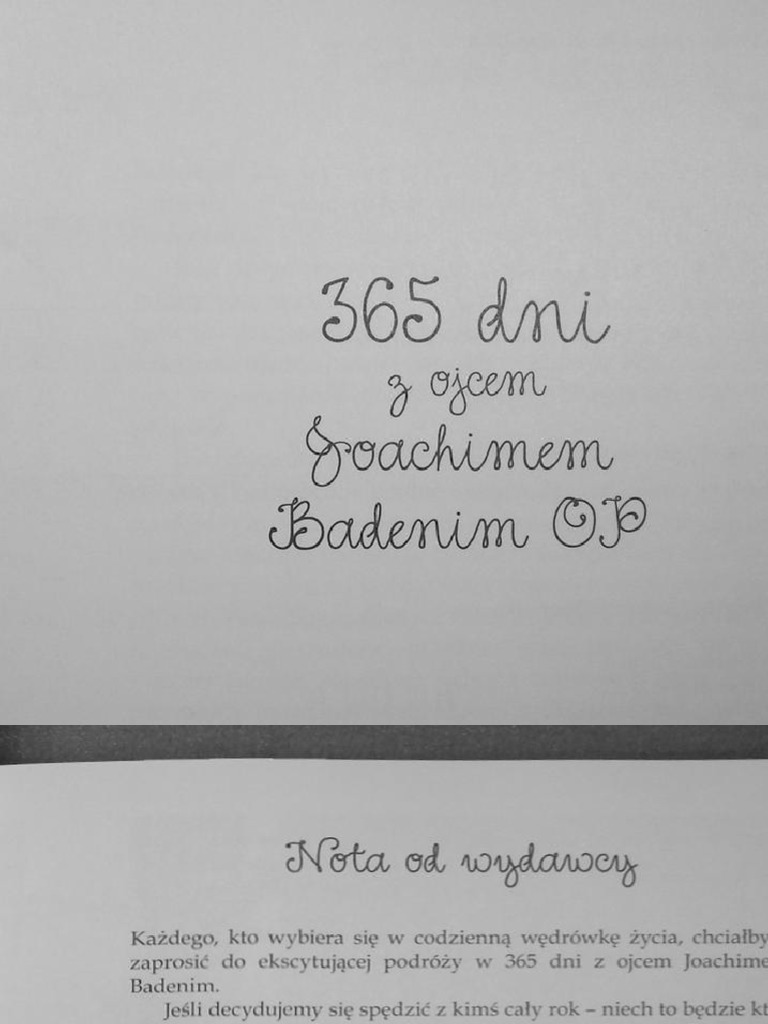 365 dni
z ojcem
Joachimem
Badenim OP
Nota od wydawcy
Każdego, kto wybiera się w codzienną wędrówkę życia, chciałby
zaprosić do ekscytującej podróży w 365 dni z ojcem Joachime
Badenim.
Jeśli decydujemy się spędzić z kimś cały rok – niech to będzie kt